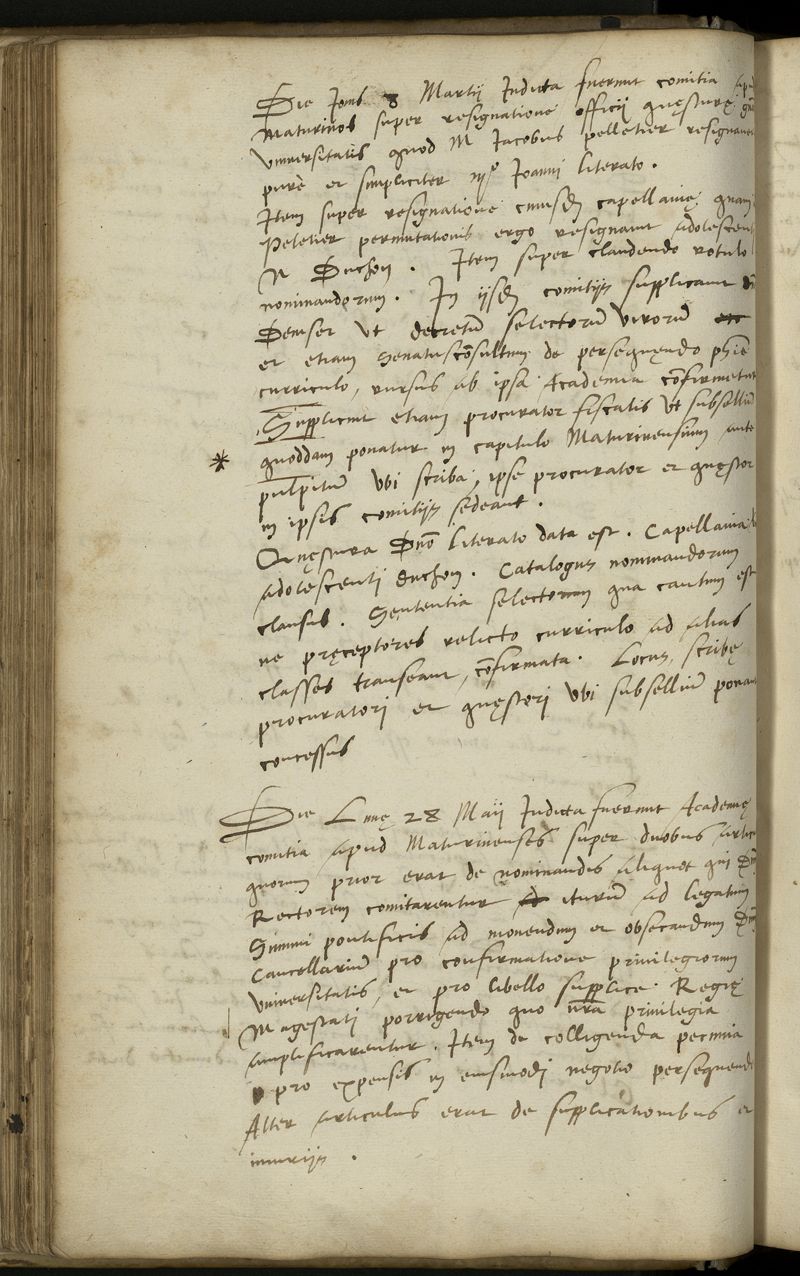 Die Jovis 8 Martij Indicta fuerunt comitia apud
Maturinos super resignatione officij quęsturę
Universitatis quod M Jacobus pelletier resignavit
purè et simpliciter mro Joanni literato.
Item super resignatione cuiusdem capellanię quam
Peletier permutationis ergo resignavit Adolescenti
N Duchon. Item super claudendo rotulo
nominandorum. In ijsdem comitijs supplicavit
Demser ut decretũ selectorũ virorũ etc
et etiam Senatuscõsultum de persequẽdo phiẽ
curriculo, rursus ab ipsa Academia cõfirmetur
Supplicuit etiam procurator fiscalis ut subselliũ
* quoddam ponatur in capitulo Maturinensium ante
pulpitũ ubi scriba, ipse procurator et quęstor
in ipsis comitijs sedeant.
Quęstura Dno literato data est. Capellania
Adolescenti duchon. Catalogus nominandorum
clausus. Sententia selectorum qua cautum est
ne pręceptores relicto curriculo ad alias
classes transeant, cõfirmata. Locus, scribę
procuratori et quęstori ubi subselliũ ponant
concessus
Die Lunę 28 Maij Indicta fuerunt Academię
comitia apud Maturinenses super duobus artic
quorum prior erat de nominandis aliquot qui Dnũ
Rectorem comitarentur ad iturũ ad legatum
Summi pontificis ad monendum et obsecrandum Dnũ
Cancellariũ pro confirmatione privilegiorum
Universitatis, et pro libello supplice Regię
Magestati porrigendo quo nrã privilegia
amplificarentur. Item de colligenda pecunia
pro expensis in eiusmodj negotio persequendo
Alter articulus erat de supplicationibus et
iniurijs.